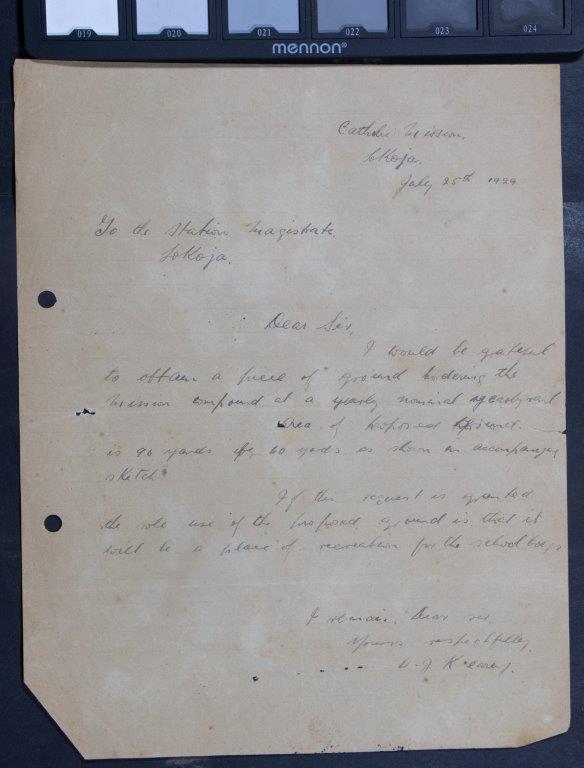 019 020 021 022 023 024
mennon®
Catholic Mission,
Lokoja.
July 25th 1929
To the Station Magistrate,
Lokoja.
Dear Sir,
I would be grateful
to obtain a piece of ground bordering the
Mission compound at a yearly nominal
Area of proposed ground
is 90 yards by 60 yards as shown on accompanying
sketch
If this request is granted
the sole use of the proposed ground is that it
will be a place of recreation for the school boys
I remain, Dear Sir,
Yours respectfully,